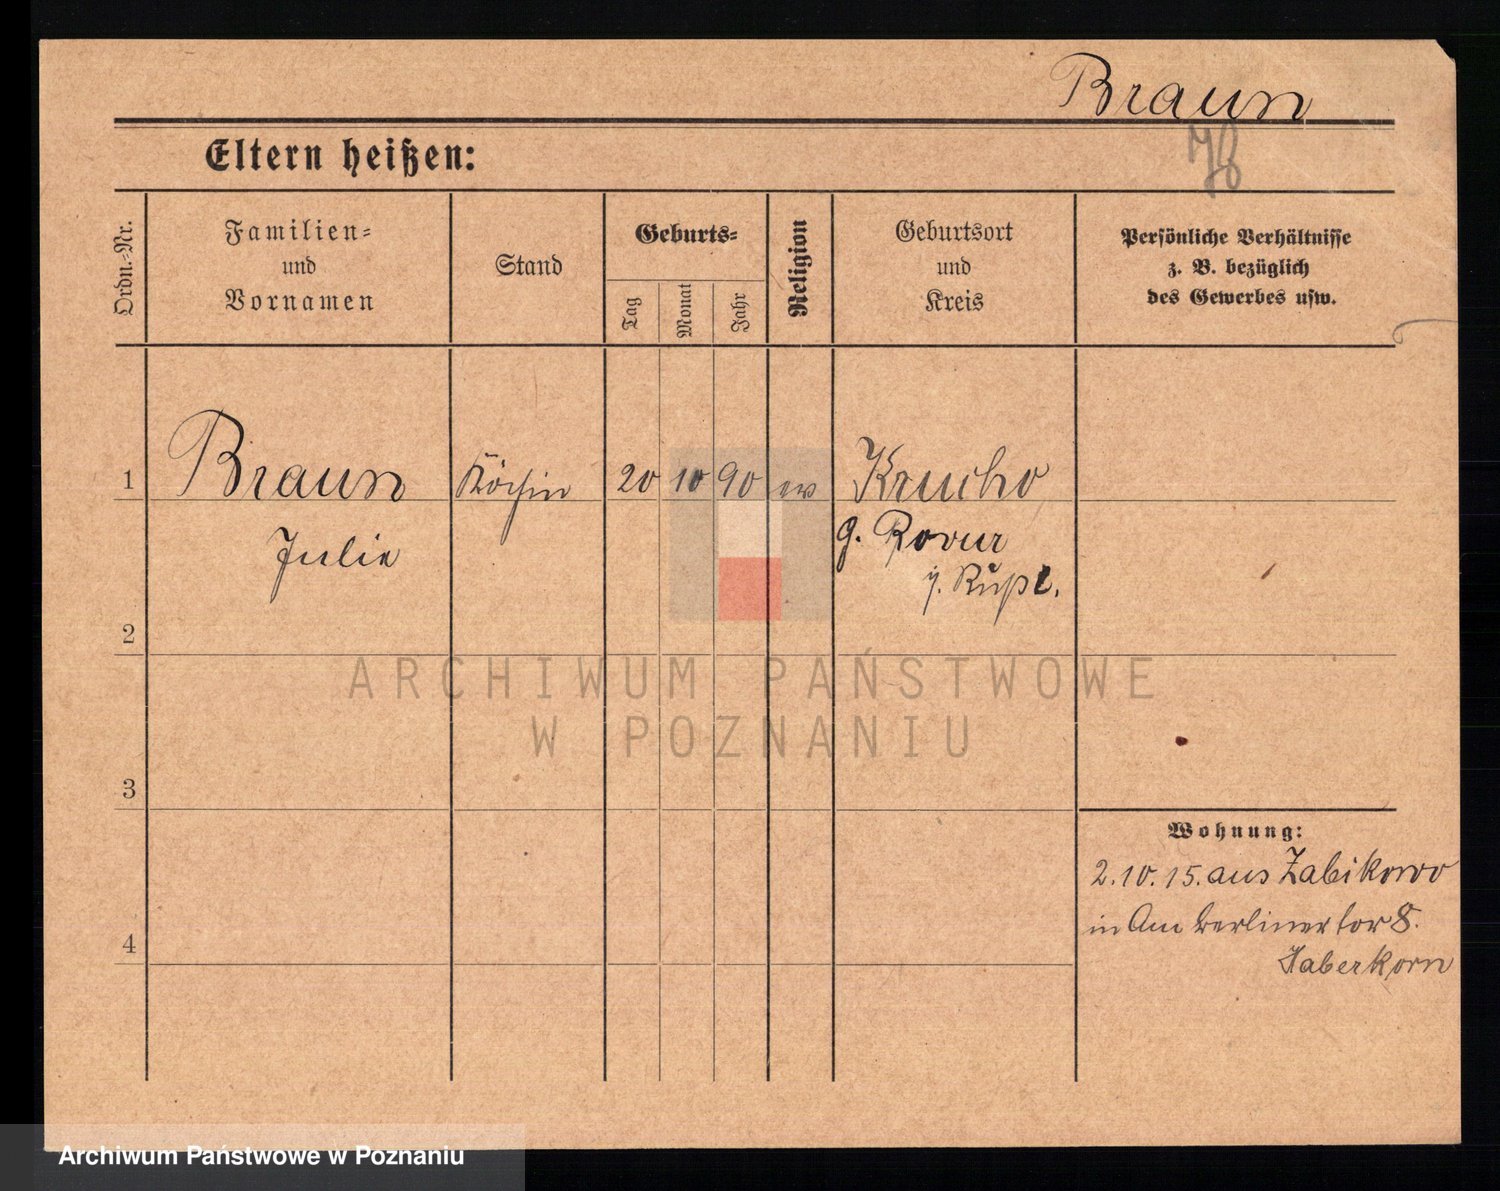 Braun
78
Eltern heißen:
Ordn.-Nr.
Familien-
und
Vornamen
Stand
Geburts-
Tag
Monat
Jahr
Religion
Geburtsort
und
Kreis
Persönliche Verhältnisse
z. B. bezüglich
des Gewerbes usw.
1
Braun
Köchin
20
10
90
ev
Krucho
g. Rovur
Julie
i. Rußl.
2
ARCHIWUM PAŃSTWOWE
W POZNANIU
3
Wohnung:
2.10.15. aus Zabikowo
in Am Berliner tor 8.
Haberkorn
4
Archiwum Państwowe w Poznaniu